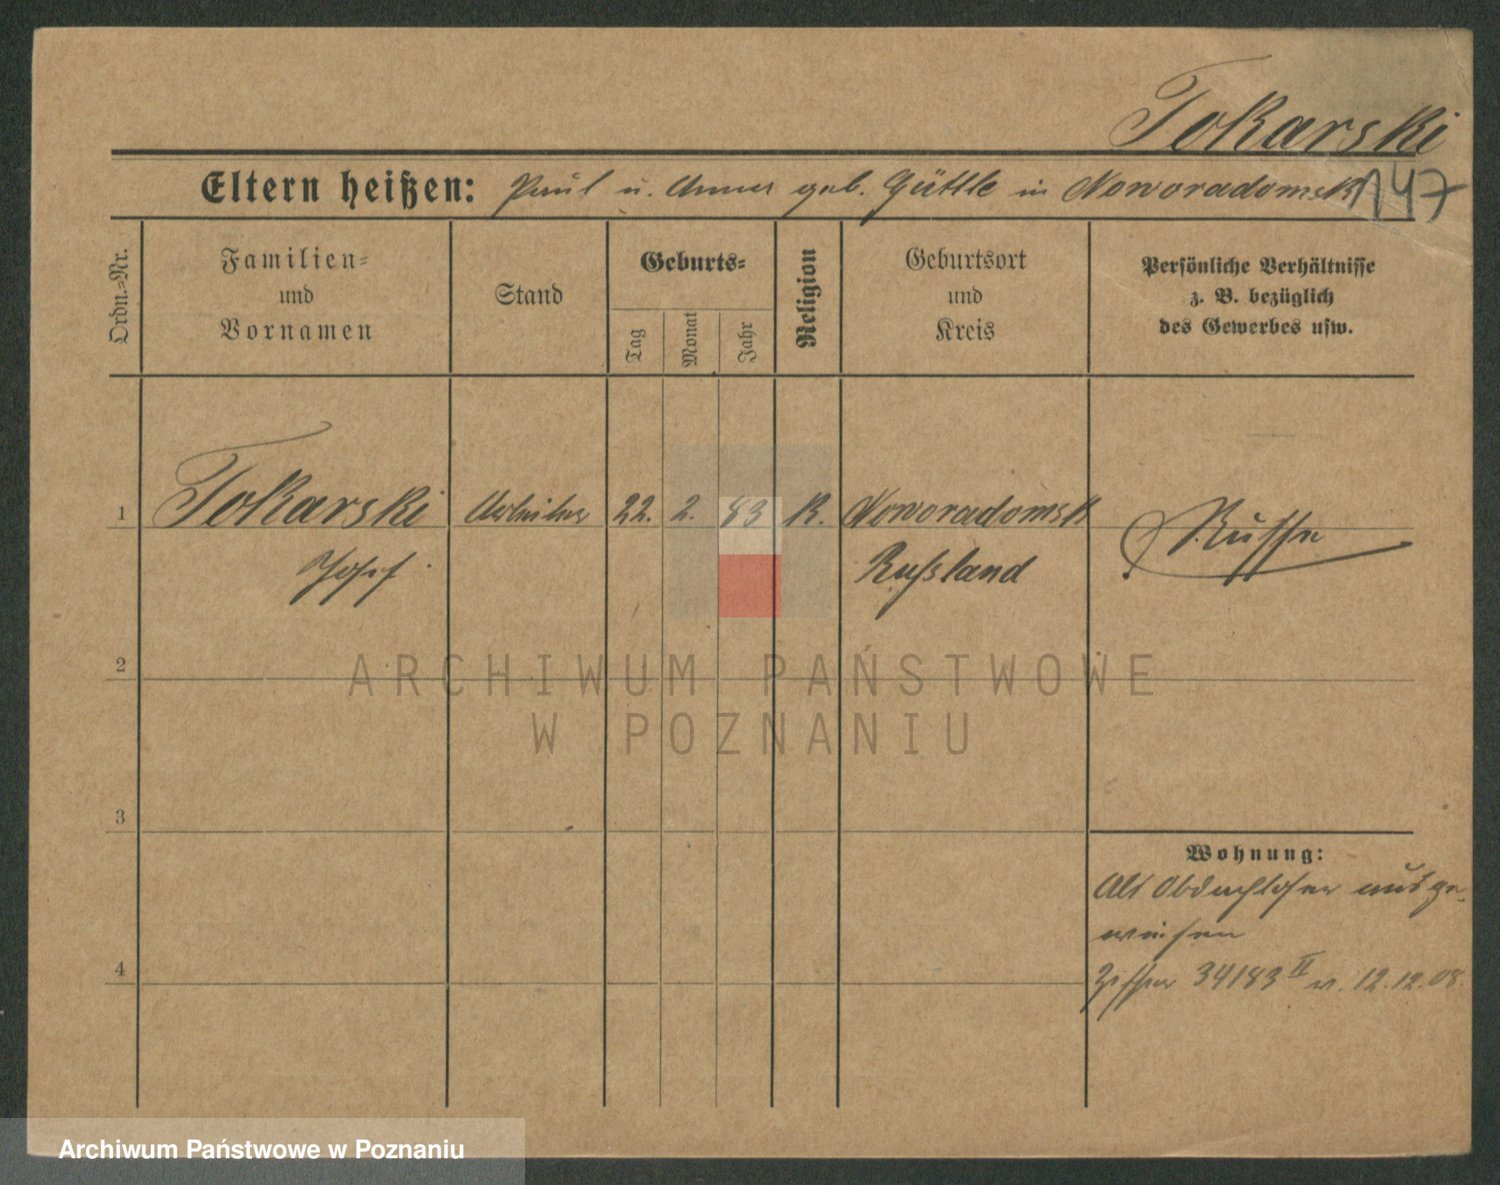 Tokarski
Eltern heißen: Paul u. Anna geb. Güttle in Noworadomsk 147
Ordn.=Nr.
Familien=
und
Vornamen
Stand
Geburts=
Tag
Monat
Jahr
Religion
Geburtsort
und
Kreis
Persönliche Verhältnisse
z. B. bezüglich
des Gewerbes usw.
1 Tokarski Arbeiter 22. 2. 83 K. Noworadomsk Russe
Josef Rußland
2
ARCHIWUM PAŃSTWOWE
W POZNANIU
3
Wohnung:
Als Obdachloser ausge-
wiesen
4
Ziffer 34183 II v. 12.12.08.
Archiwum Państwowe w Poznaniu